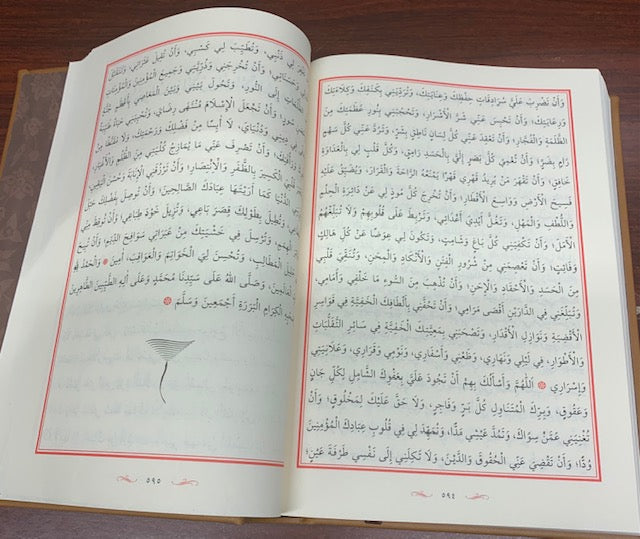 وَأَنْ تَضْرِبَ عَلَيَّ سُرَادِقَاتِ حِفْظِكَ وَعِنَايَتِكَ، وَتُرَدِّيَنِي بِكَنَفِكَ وَكِلَاءَتِكَ
وَرِعَايَتِكَ، وَأَنْ تَحْبِسَ عَنِّي شَرَّ الْأَشْرَارِ، وَتَحْجُبَنِي بِنُورِ عَظَمَتِكَ مِنَ
الظَّلَمَةِ وَالْفُجَّارِ؛ وَأَنْ تَعْقِدَ عَنِّي كُلَّ لِسَانٍ نَاطِقٍ بِشَرٍّ، وَتَرُدَّ عَنِّي كُلَّ سَهْمٍ
رَامٍ بِضُرٍّ؛ وَأَنْ تُعْمِيَ كُلَّ بَصَرٍ إِلَيَّ بِالْحَسَدِ رَامِقٍ، وَكُلَّ قَلْبٍ لِي بِالْعَدَاوَةِ
خَافِقٍ؛ وَأَنْ تَقْهَرَ مَنْ يُرِيدُ قَهْرِي قَهْرًا يَمْنَعُهُ الرَّاحَةَ وَالْقَرَارَ، وَيُضَيِّقُ عَلَيْهِ
فَسِيحَ الْأَرْضِ وَوَاسِعَ الْأَقْطَارِ؛ وَأَنْ تُخْرِجَ كُلَّ مُوذٍ لِي عَنْ دَائِرَةِ الْحِلْمِ
وَاللُّطْفِ وَالْمَهَلِ، وَتَغُلَّ أَيْدِيَ أَعْدَائِي، وَتَرْبِطَ عَلَى قُلُوبِهِمْ وَلَا تُبَلِّغَهُمُ
الْأَمَلَ؛ وَأَنْ تَكْفِيَنِي كُلَّ بَاغٍ وَشَامِتٍ، وَتَكُونَ لِي عِوَضًا عَنْ كُلِّ هَالِكٍ
وَفَائِتٍ؛ وَأَنْ تَعْصِمَنِي مِنْ شُرُورِ الْفِتَنِ وَالْأَنْكَادِ وَالْمِحَنِ، وَأَنْ تُنَقِّيَ قَلْبِي
مِنَ الْحَسَدِ وَالْأَحْقَادِ وَالْإِحَنِ؛ وَأَنْ تُذْهِبَ مِنَ السُّوءِ مَا خَلْفِي وَأَمَامِي،
وَتُبَلِّغَنِي فِي الدَّارَيْنِ أَقْصَى مَرَامِي؛ وَأَنْ تَحُفَّنِي بِأَلْطَافِكَ الْخَفِيَّةِ فِي
الْأَقْضِيَةِ وَنَوَازِلِ الْأَقْدَارِ، وَتَصْحَبَنِي بِمَعِيَّتِكَ الْخَفِيَّةِ فِي سَائِرِ التَّقَلُّبَاتِ
وَالْأَطْوَارِ، فِي لَيْلِي وَنَهَارِي، وَظَعْنِي وَأَسْفَارِي، وَنَوْمِي وَقَرَارِي، وَعَلَانِيَتِي
وَإِسْرَارِي ۞ اَللَّهُمَّ وَأَسْأَلُكَ بِهِمْ أَنْ تَجُودَ عَلَيَّ بِعَفْوِكَ الشَّامِلِ لِكُلِّ جَانٍ
وَعَقُوقٍ، وَبِبِرِّكَ الْمُتَنَاوِلِ كُلَّ بَرٍّ وَفَاجِرٍ، وَلَا حَقَّ عَلَيْكَ لِمَخْلُوقٍ؛ وَأَنْ
تُغْنِيَنِي عَمَّنْ سِوَاكَ، وَتَمُدَّ عَيْشِي مَدًّا، وَتُمَهِّدَ لِي فِي قُلُوبِ عِبَادِكَ الْمُؤْمِنِينَ
وُدًّا؛ وَأَنْ تَقْضِيَ عَنِّي الْحُقُوقَ وَالدَّيْنَ، وَلَا تَكِلَنِي إِلَى نَفْسِي طَرْفَةَ عَيْنٍ؛
٥٩٤
لِي ذَنْبِي، وَتُطَيِّبَ لِي كَسْبِي، وَأَنْ تُقِيلَ عَثَرَاتِي،
وَأَنْ تُخْرِجَنِي وَذُرِّيَّتِي وَجَمِيعَ الْمُؤْمِنِينَ وَالْمُؤْمِنَاتِ
إِلَى النُّورِ، وَتَحُولَ بَيْنِي وَبَيْنَ الْمَعَاصِي بِأَعْظَمِ
سُورٍ؛ وَأَنْ تَجْعَلَ الْإِسْلَامَ مُنْتَهَى رِضَايَ، وَتُحْيِيَنِي حَيَاةً طَيِّبَةً
فِي دِينِي وَدُنْيَايَ، لَا آيِسًا مِنْ فَضْلِكَ وَرَحْمَتِكَ، وَلَا
وَأَنْ تَصْرِفَ عَنِّي مَا يُمَازِجُ كُلِّيَّتِي مِنَ الظُّلَمِ
الْكَسِيرَ بِالظَّفَرِ وَالْاِنْتِصَارِ؛ وَأَنْ تَرْزُقَنِي الْإِنَابَةَ وَحُسْنَ
الدُّنْيَا كَمَا أَرَيْتَهَا عِبَادَكَ الصَّالِحِينَ؛ وَأَنْ تُوصِلَ بِفَضْلِكَ
وَتُطِيلَ بِطَوْلِكَ قِصَرَ بَاعِي، وَتُزِيلَ
وَتُرْسِلَ فِي خَشْيَتِكَ مِنْ عَبَرَاتِي سَوَافِحَ الدِّيَمِ؛ وَأَنْ
الْمَطَالِبِ، وَتُحْسِنَ لِيَ الْخَوَاتِيمَ وَالْعَوَاقِبَ، آمِينَ ۞ وَالْحَمْدُ
وَصَلَّى اللهُ عَلَى سَيِّدِنَا مُحَمَّدٍ وَعَلَى آلِهِ الطَّيِّبِينَ الطَّاهِرِينَ
الْكِرَامِ الْبَرَرَةِ أَجْمَعِينَ وَسَلَّمَ ۞
٥٩٥